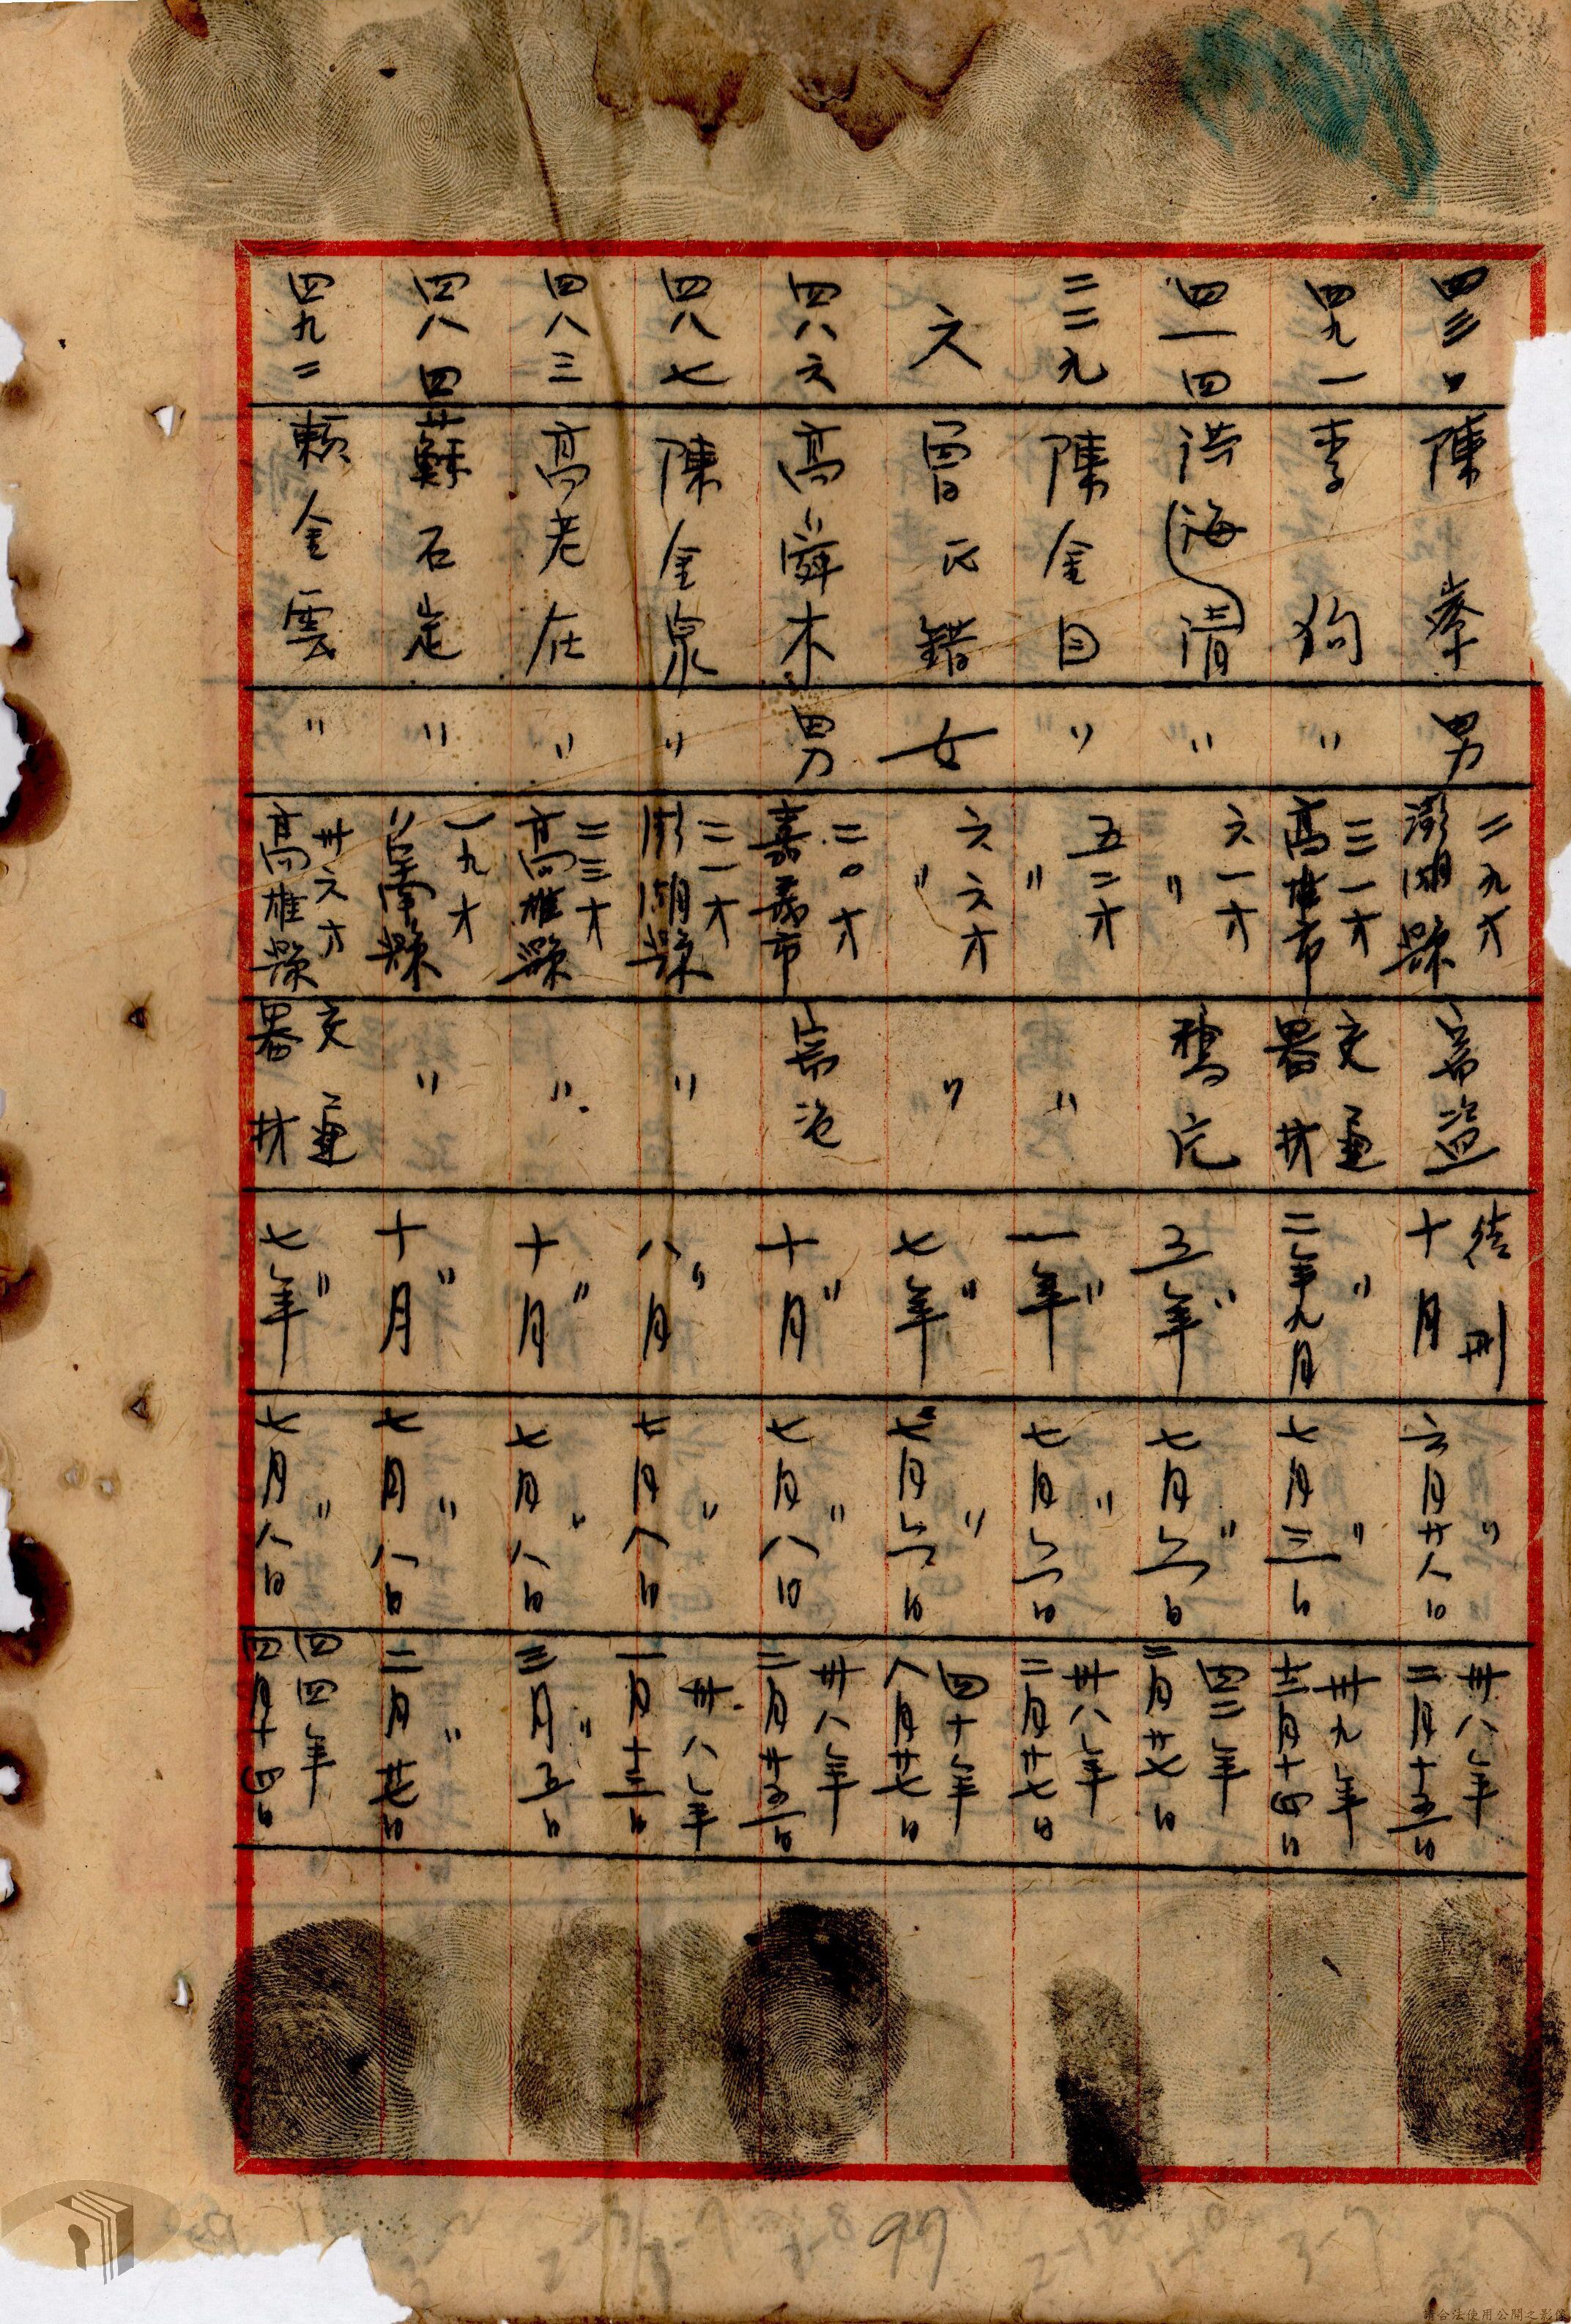 四三〇 陳 拳 男 二九才 澎湖縣 竊盜 徒刑 十月 〃 六月廿八日 卅八年 二月十五日
四九一 李 狗 〃 三一才 高雄市 交通 器材 〃 二年九月 〃 七月三日 卅九年 十二月十四日
四一四 洪海清 〃 六一才 〃 鴉片 〃 五年 〃 七月六日 四三年 二月廿七日
二二九 陳金目 〃 五二才 〃 〃 〃 一年 〃 七月六日 卅八年 二月廿七日
六 曾氏錯 女 六六才 〃 〃 〃 七年 〃 七月六日 四十年 八月廿七日
四八六 高舜木 男 二〇才 嘉義市 竊盜 〃 十月 〃 七月八日 卅八年 二月廿五日
四八七 陳金泉 〃 二一才 澎湖縣 〃 〃 八月 〃 七月八日 卅八年 一月十三日
四八三 高老在 〃 二三才 高雄縣 〃 〃 十月 〃 七月八日 〃 三月五日
四八四 蘇石定 〃 一九才 台南縣 〃 〃 十月 〃 七月八日 〃 二月廿七日
四九二 賴金雲 〃 卅六才 高雄縣 交通 器材 〃 七年 〃 七月八日 四四年 四月十四日
97
請合法使用公開之影像